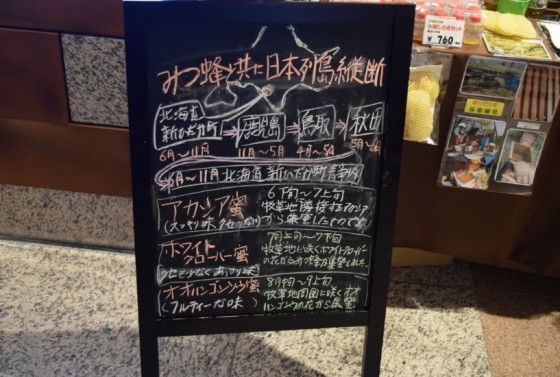 みつ蜂と共に日本列島縦断
北海道
新ひだか町 → 鹿児島 → 鳥取 → 秋田
6月～11月 11月～5月 4月～5月 5月～6月
6月～11月 北海道 新ひだか町 静内
アカシア蜜
(スッキリ味 クセのない)
6下旬～7上旬
牧草地隣接するアカシア
から集蜜したもので
ホワイト
クローバー蜜
クセが少なく あっさり味
7月上旬～7下旬
牧草地に咲くホワイトクローバー
の花からみつ蜂が集蜜しました
オオハンゴンソウ蜜
(フルーティーな味)
8月中旬～9上旬
牧草地周囲に咲くオオ
ハンゴンソウの花から集蜜
¥760